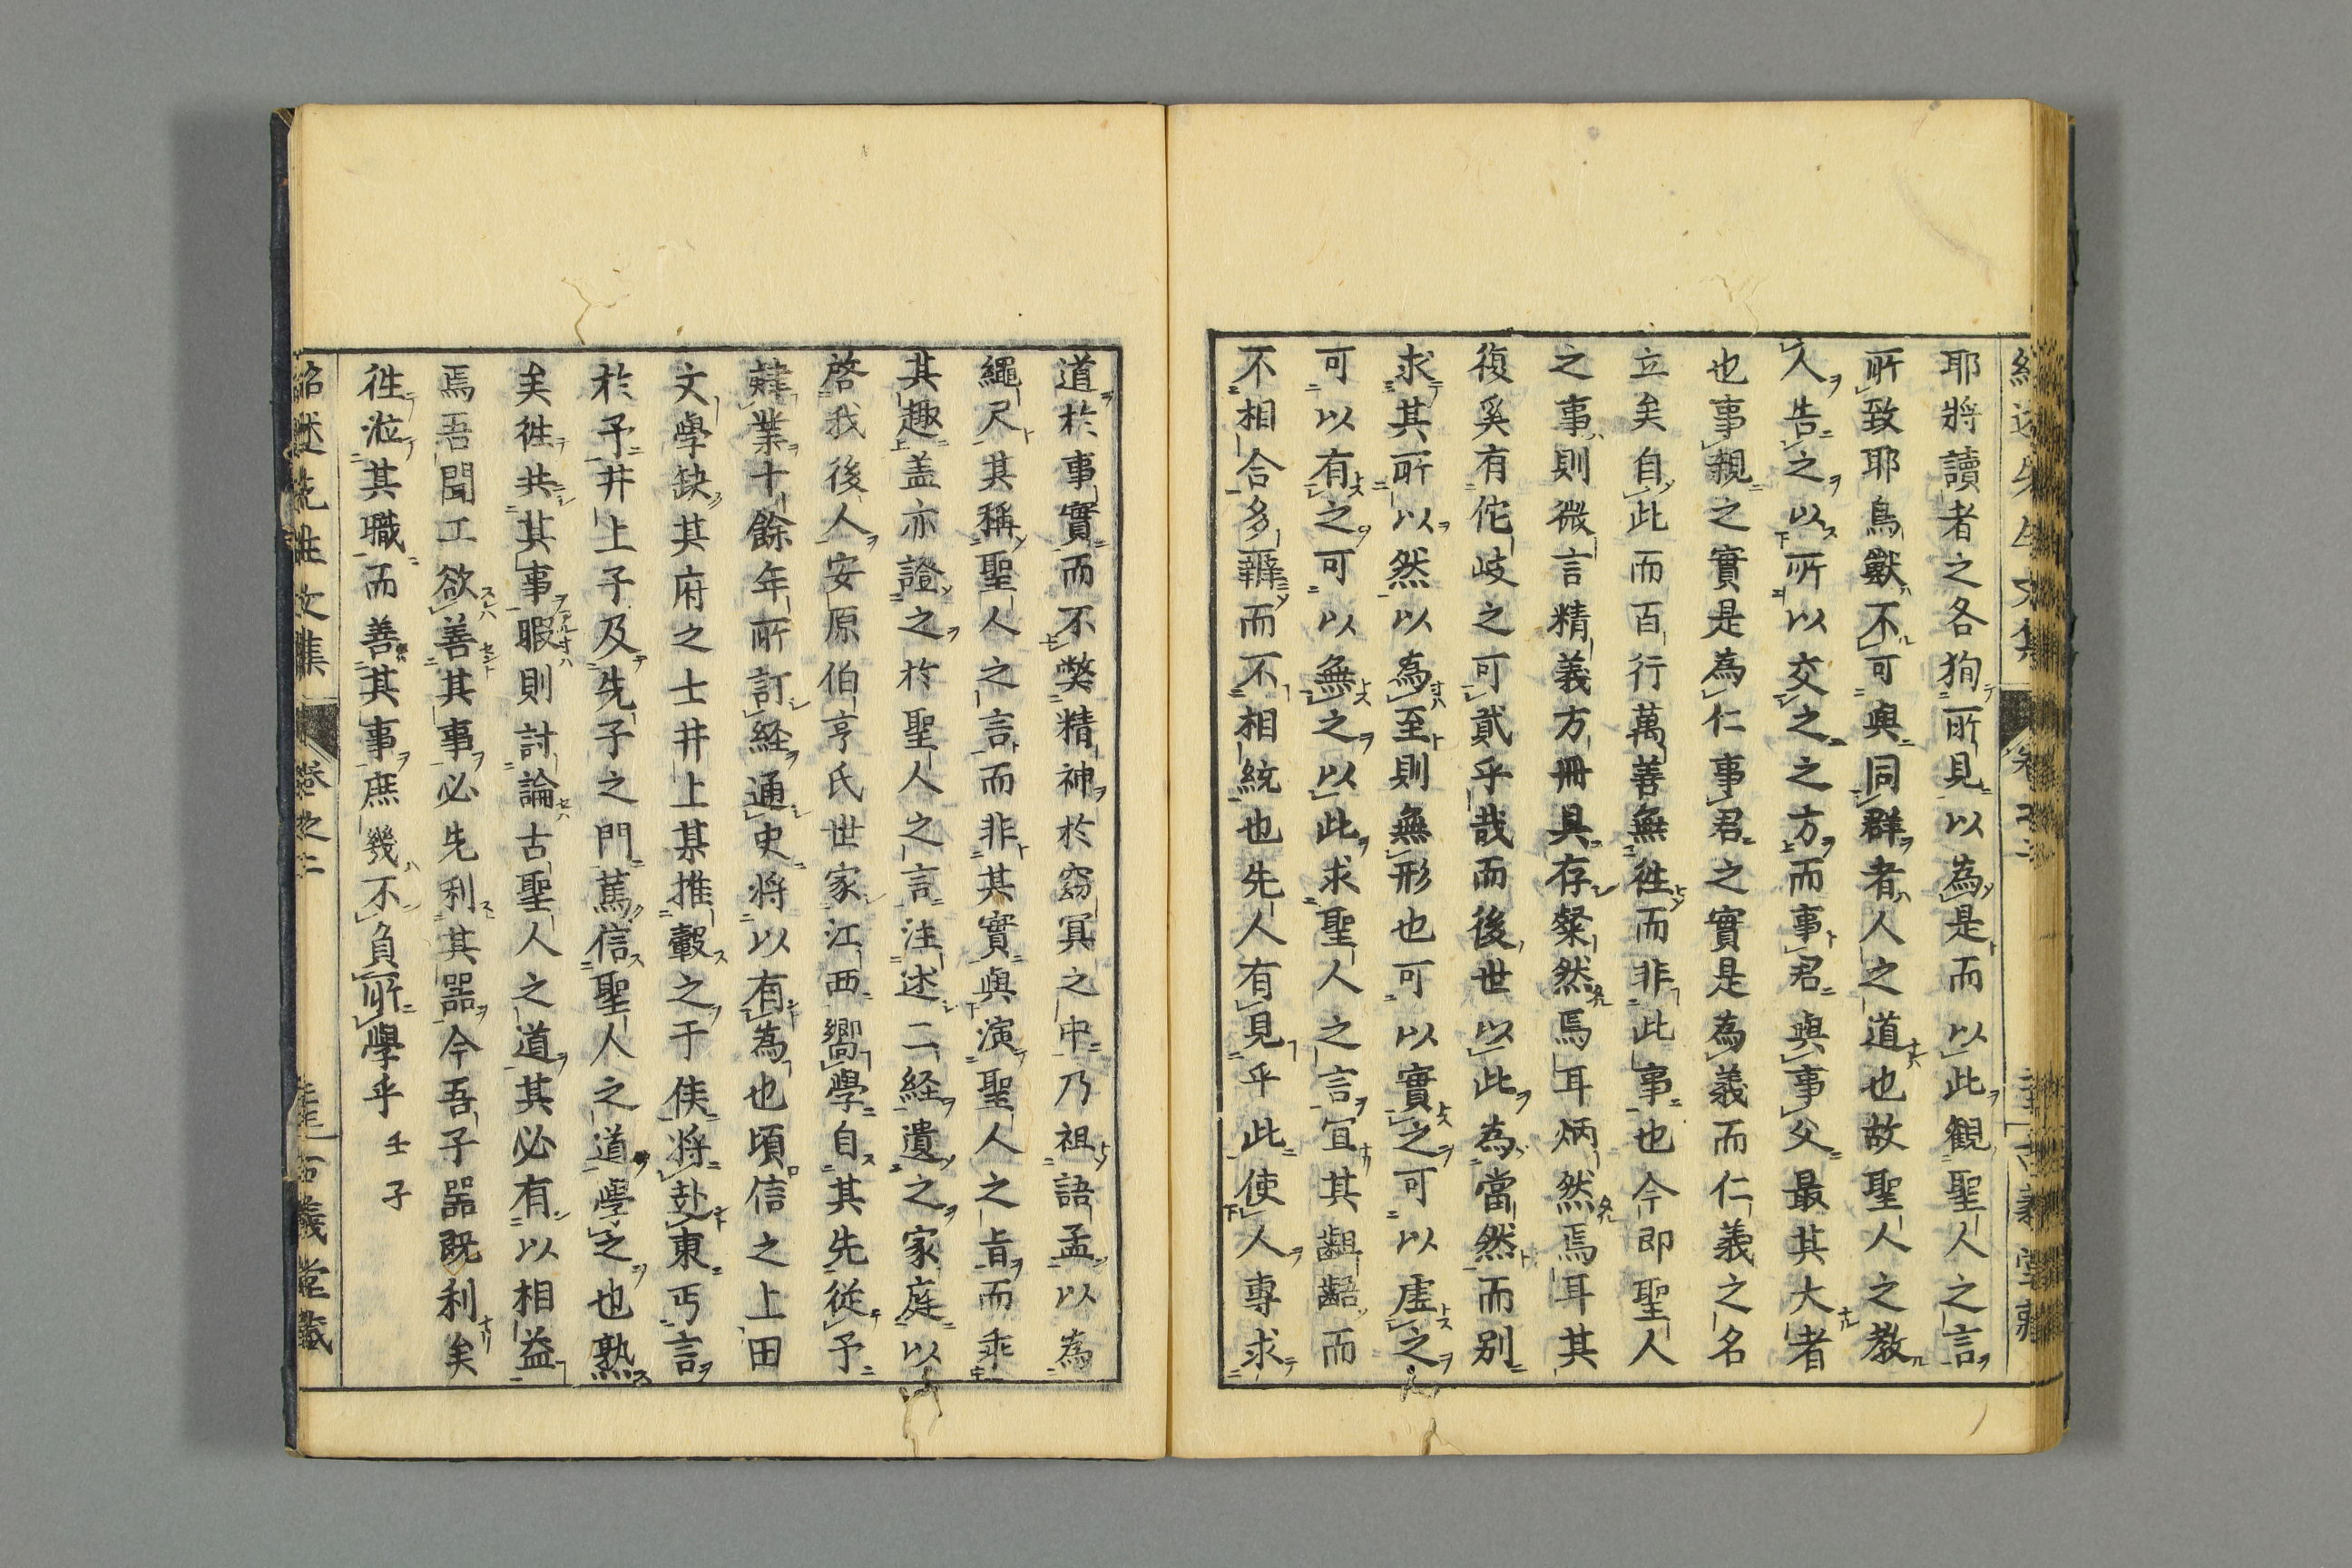 耶將讀者之各狥所見以為是而以此観聖人之言
所致耶鳥獸不可與同群者人之道也故聖人之教
人告之以所以交之之方而事君與事父最其大者
也事親之實是為仁事君之實是為義而仁義之名
立矣自此而百行萬善無徃而非此事也今即聖人
之事則微言精義方冊具存粲然焉耳炳然焉耳其
復奚有佗岐之可貳乎哉而後世以此為當然而別
求其所以然以為至則無形也可以實之可以虚之
可以有之可以無之以此求聖人之言宜其齟齬而
不相合多辨而不相統也先人有見乎此使人專求
道於事實而不弊精神於窈冥之中乃祖語孟以為
繩尺其稱聖人之言而非其實與演聖人之旨而乖
其趣盖亦證之於聖人之言注述二経遺之家庭以
啓我後人安原伯亨氏世家江西嚮學自其先從予
肄業十餘年所訂経通史将以有為也頃信之上田
文學缺其府之士井上某推轂之于侯将赴東丐言
於予井上子及先子之門篤信聖人之道學之也熟
矣徃共其事暇則討論古聖人之道其必有以相益
焉吾聞工欲善其事必先利其器今吾子器既利矣
徃涖其職而善其事庶幾不負所學乎 壬子
紹述先生文集 卷之二 古義堂藏